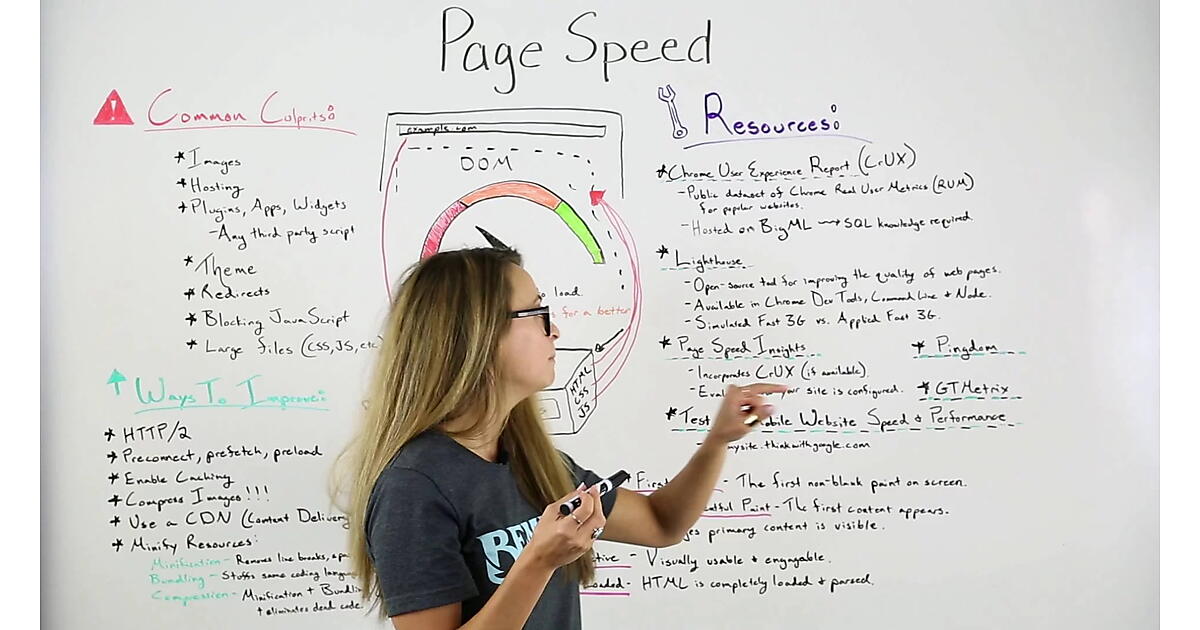 Page Speed
Common Culprits:
* Images
* Hosting
* Plugins, Apps, Widgets
- Any third party script
* Theme
* Redirects
* Blocking JavaScript
* Large files (CSS, JS, etc
Ways To Improve:
* HTTP/2
* Preconnect, prefetch, preload
* Enable Caching
* Compress Images!!!
* Use a CDN (Content Delivery
* Minify Resources:
Minification - Removes line breaks,
Bundling - Stuffs same coding
Compression - Minification +
+ eliminates dead code.
example.com
DOM
load.
for a better
HTML
CSS
JS
Resources:
* Chrome User Experience Report (CrUX)
- Public dataset of Chrome Real User Metrics (RUM)
for popular websites.
- Hosted on BigML → SQL knowledge required.
* Lighthouse
- Open-source tool for improving the quality of web pages.
- Available in Chrome Dev Tools, Command Line & Node.
- Simulated Fast 3G vs. Applied Fast 3G.
* Page Speed Insights
- Incorporates CrUX (if available).
- site is configured.
* Pingdom
* GTMetrix
* Test Website Speed & Performance
mysite.thinkwithgoogle.com
- The first non-blank paint on screen.
Paint - The first content appears.
primary content is visible.
- Visually usable & engagable.
Loaded - HTML is completely loaded & parsed.